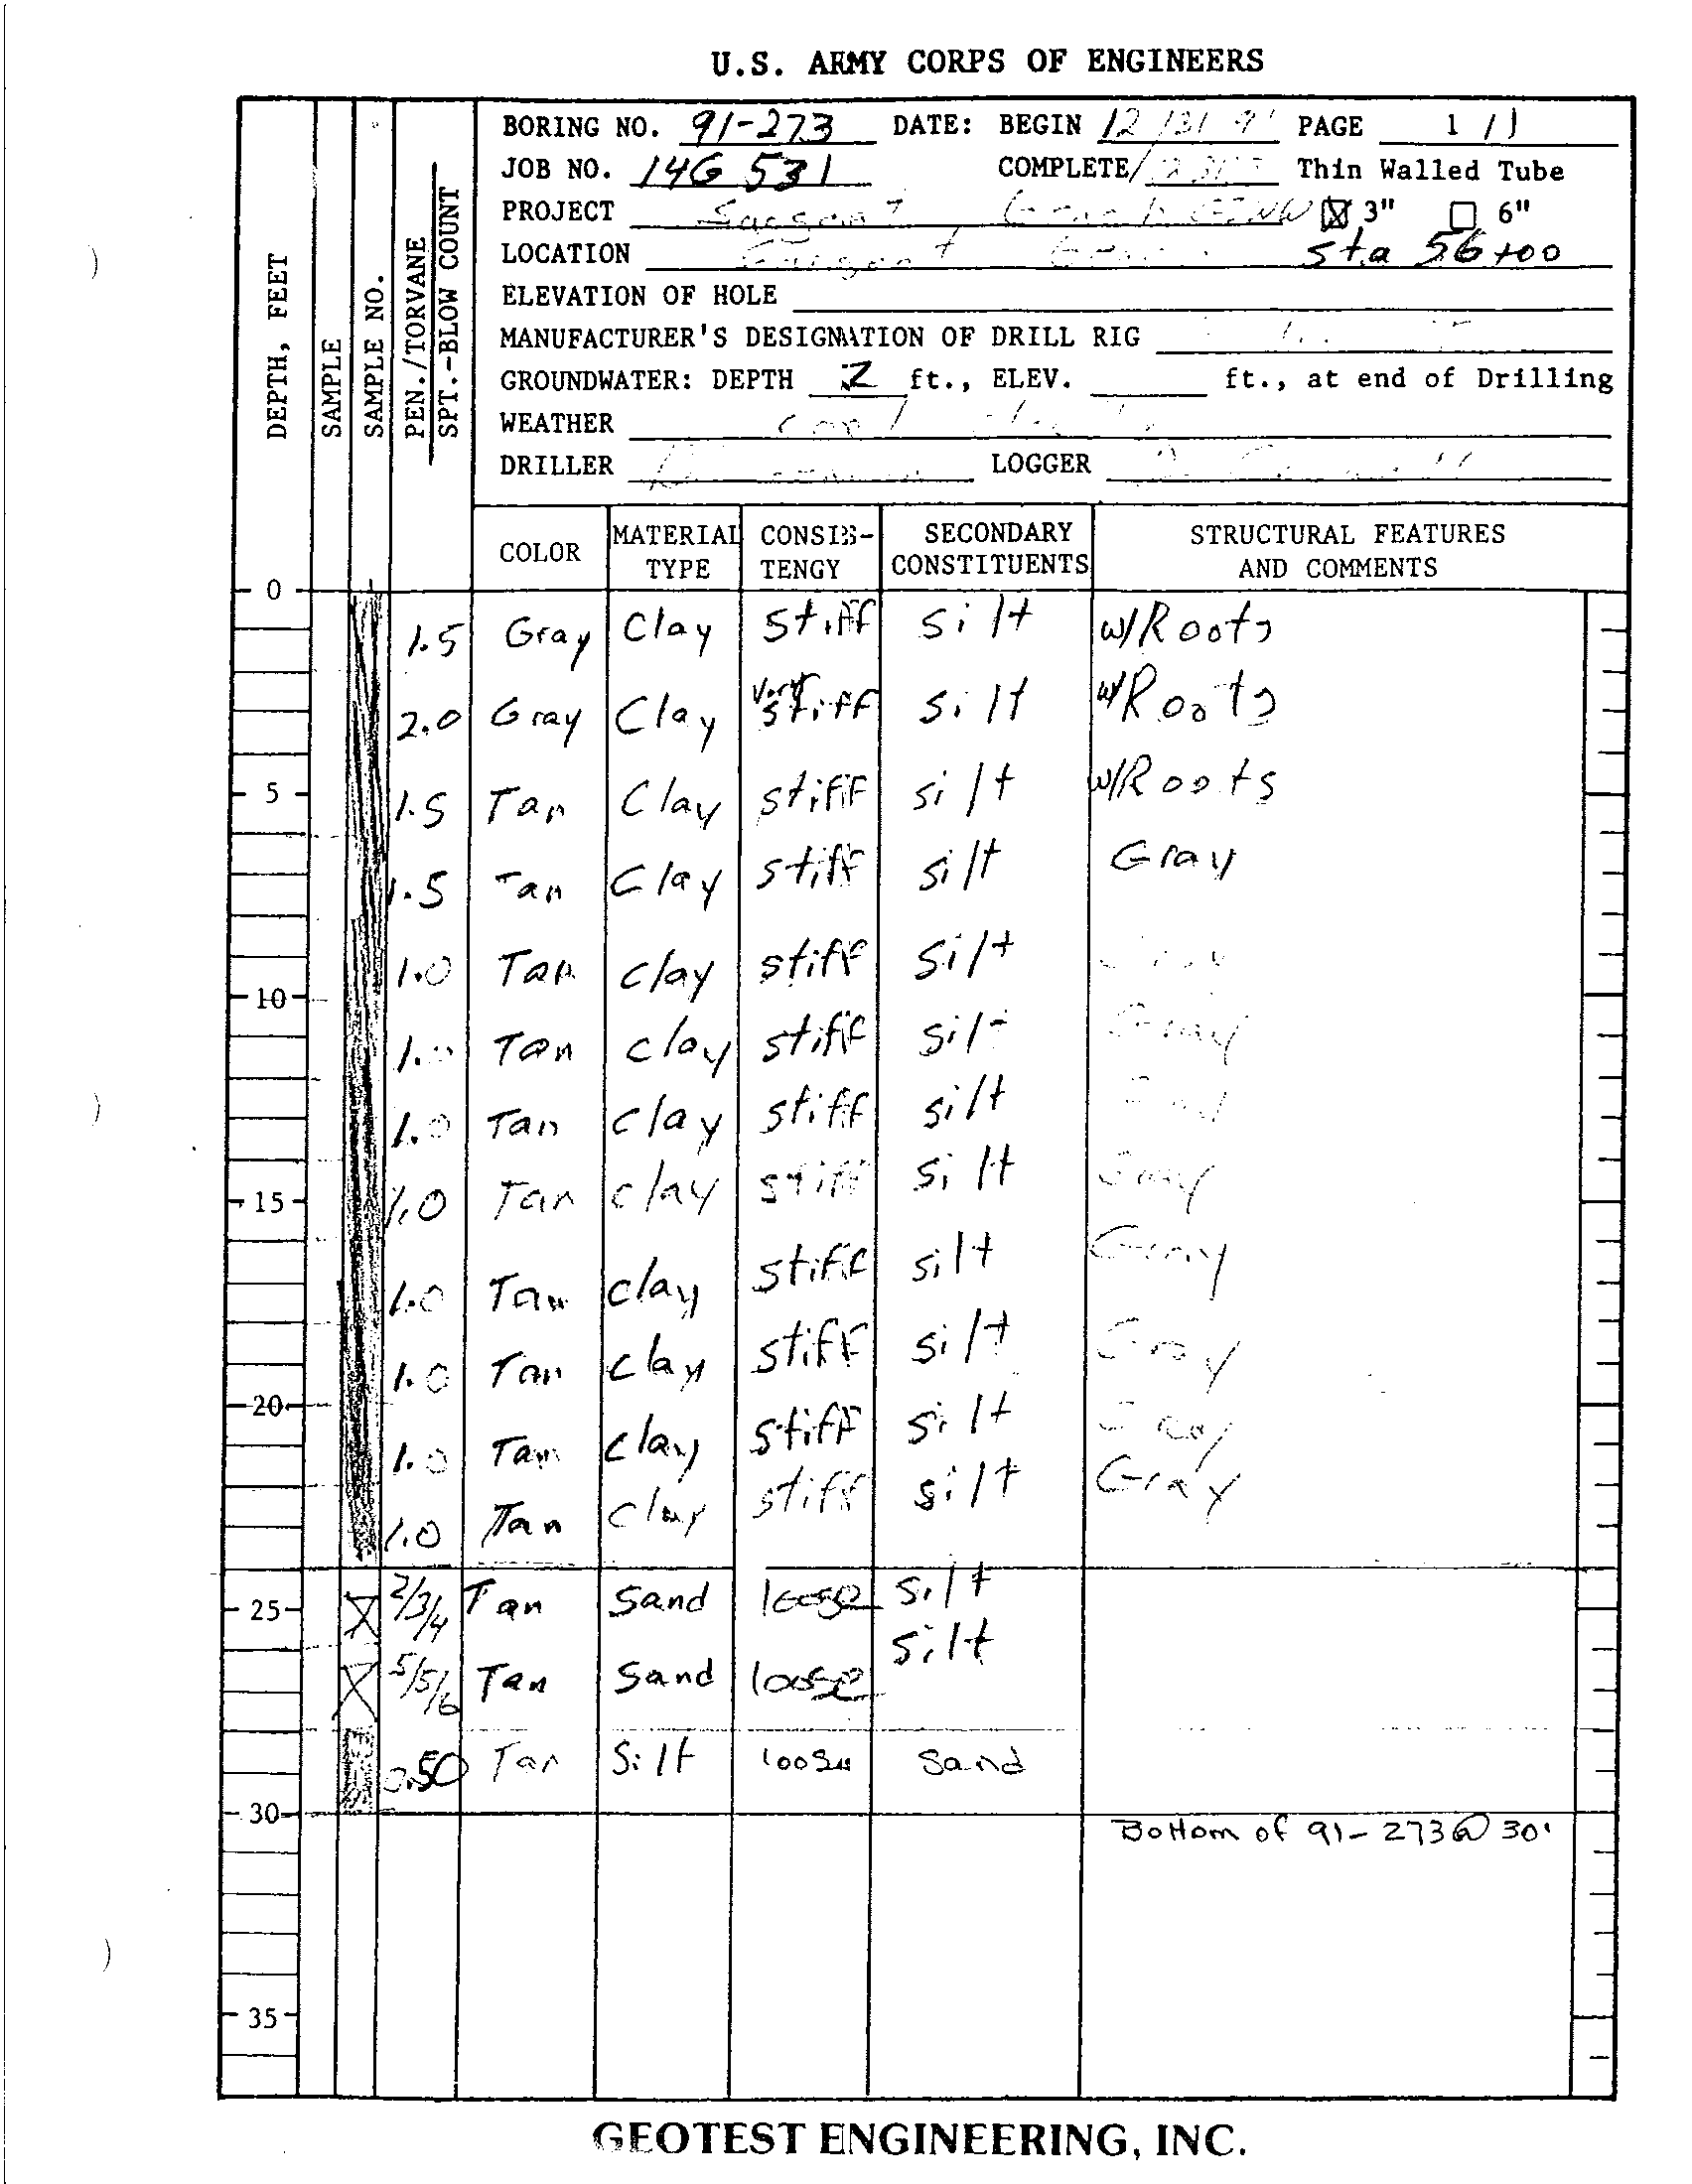 U.S. ARMY CORPS OF ENGINEERS
BORING NO. 91-273 DATE: BEGIN 12/31 9 PAGE 1 / 1
JOB NO. 14G 531 COMPLETE Thin Walled Tube
PROJECT 3" 6"
LOCATION sta 56+00
ELEVATION OF HOLE
MANUFACTURER'S DESIGNATION OF DRILL RIG
GROUNDWATER: DEPTH 2 ft., ELEV. ft., at end of Drilling
WEATHER cool
DRILLER LOGGER
DEPTH, FEET
SAMPLE
SAMPLE NO.
PEN./TORVANE
SPT.-BLOW COUNT
COLOR MATERIAL TYPE CONSIS-TENGY SECONDARY CONSTITUENTS STRUCTURAL FEATURES AND COMMENTS
0
1.5 Gray Clay stiff silt w/Roots
2.0 Gray Clay very stiff silt w/Roots
5 1.5 Tan Clay stiff silt w/Roots
1.5 Tan Clay stiff silt Gray
1.0 Tan clay stiff silt
10
1.0 Tan clay stiff silt Gray
1.0 Tan clay stiff silt
15 1.0 Tan clay stiff silt Gray
1.0 Tan clay stiff silt Gray
1.0 Tan clay stiff silt Gray
20
1.0 Tan clay stiff silt Gray
1.0 Tan clay stiff silt Gray
25 2/3/4 Tan Sand loose silt
5/5/6 Tan Sand loose silt
0.50 Tan Silt loose Sand
30
Bottom of 91-273@ 30'
35
GEOTEST ENGINEERING, INC.